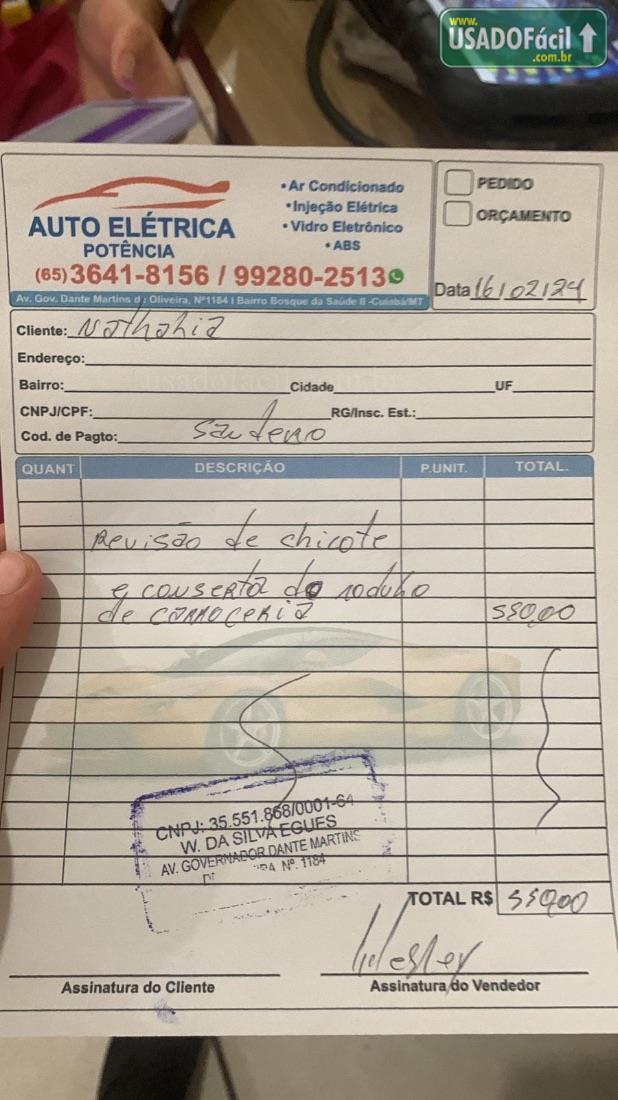 www.
USADOFácil
.com.br
AUTO ELÉTRICA
POTÊNCIA
•Ar Condicionado
•Injeção Elétrica
•Vidro Eletrônico
•ABS
(65)3641-8156 / 99280-2513
Av. Gov. Dante Martins d Oliveira, Nº1184 | Bairro Bosque da Saúde II -Cuiabá/MT
PEDIDO
ORÇAMENTO
Data 16/02/24
Cliente: Nathahia
Endereço:
Bairro: Cidade UF
CNPJ/CPF: RG/Insc. Est.:
Cod. de Pagto: Sandero
QUANT DESCRIÇÃO P.UNIT. TOTAL.
Revisão de chicote
e conserta do
de carroceria 550,00
CNPJ: 35.551.868/0001-64
W. DA SILVA EGUES
AV. GOVERNADOR DANTE MARTINS
Nº. 1184
TOTAL R$ 550,00
Wesley
Assinatura do Cliente
Assinatura do Vendedor